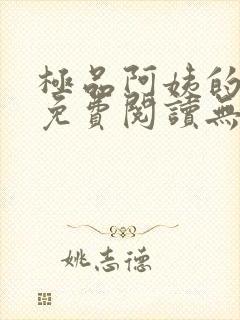 極品阿姨的
免費閱讀無
姚志德